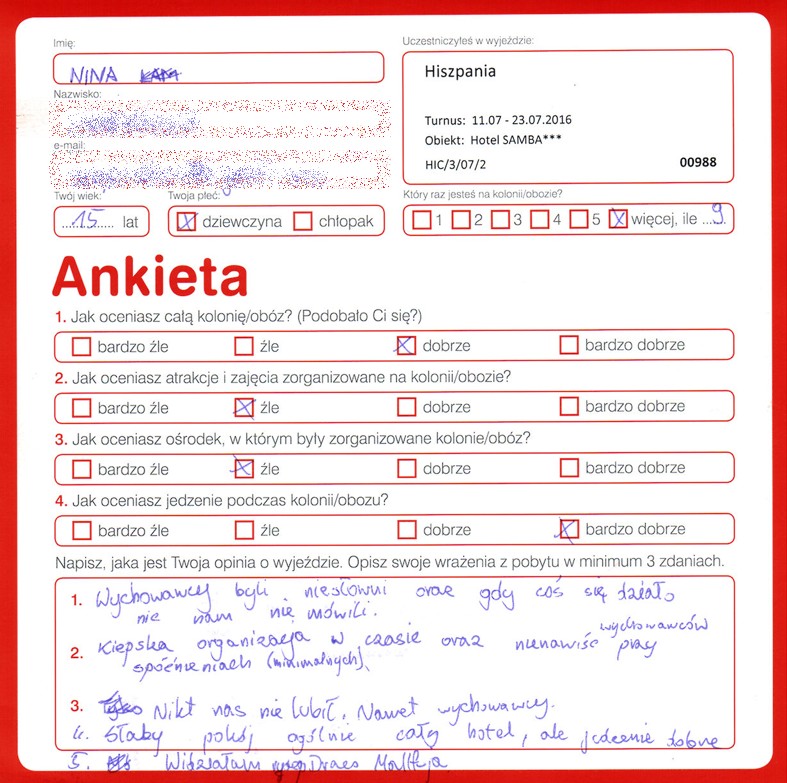 Imię:
NINA
Nazwisko:
e-mail:
Twój wiek:
15 lat
Twoja płeć:
dziewczyna chłopak
Uczestniczyłeś w wyjeździe:
Hiszpania
Turnus: 11.07 - 23.07.2016
Obiekt: Hotel SAMBA***
HIC/3/07/2 00988
Który raz jesteś na kolonii/obozie?
1 2 3 4 5 więcej, ile 9
Ankieta
1. Jak oceniasz całą kolonię/obóz? (Podobało Ci się?)
bardzo źle źle dobrze bardzo dobrze
2. Jak oceniasz atrakcje i zajęcia zorganizowane na kolonii/obozie?
bardzo źle źle dobrze bardzo dobrze
3. Jak oceniasz ośrodek, w którym były zorganizowane kolonie/obóz?
bardzo źle źle dobrze bardzo dobrze
4. Jak oceniasz jedzenie podczas kolonii/obozu?
bardzo źle źle dobrze bardzo dobrze
Napisz, jaka jest Twoja opinia o wyjeździe. Opisz swoje wrażenia z pobytu w minimum 3 zdaniach.
1. Wychowawcy byli niesłowni oraz gdy coś się działo
nic nam nie mówili.
2. Kiepska organizacja w czasie oraz nienawiść wychowawców przy
spóźnieniach (minimalnych).
3. Nikt nas nie lubił. Nawet wychowawcy.
4. Słaby pokój ogólnie cały hotel, ale jedzenie dobre
5. Widziałam